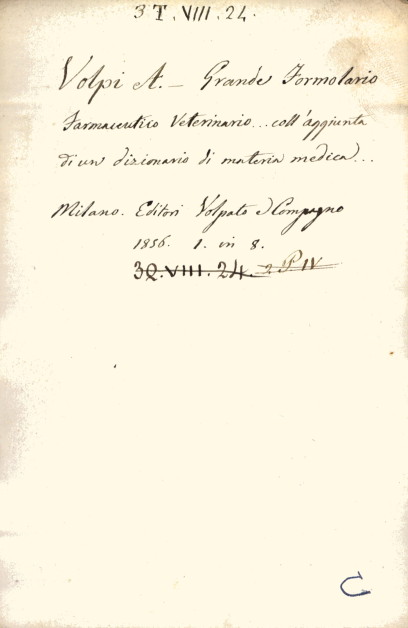 3 T. VIII. 24.
Volpi A. — Grande Formolario
Farmaceutico Veterinario... coll'aggiunta
di un dizionario di materia medica...
Milano. Editori Volpato e Compagno
1856. 1. in 8.
3Q. VIII. 24. 2 P IV
C